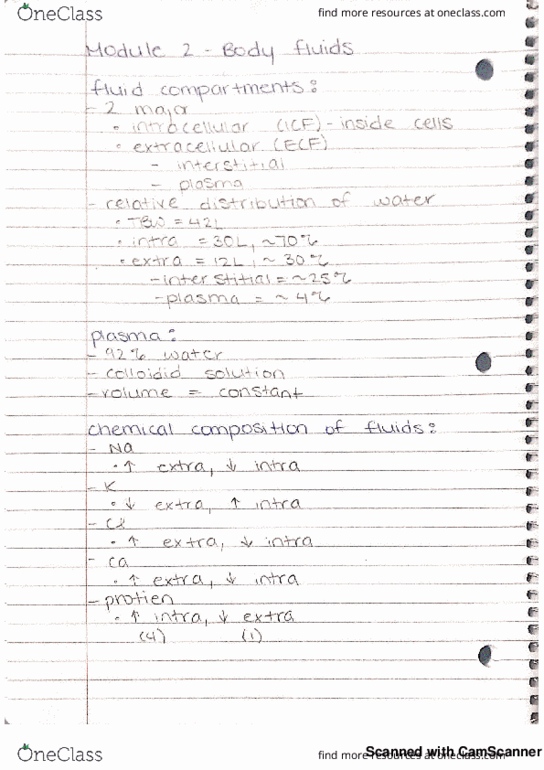 OneClass
find more resources at oneclass.com
Module 2 - Body fluids
fluid compartments:
- 2 major
• intracellular (ICF) - inside cells
• extracellular (ECF)
- interstitial
- plasma
- relative distribution of water
• TBW = 42L
• intra = 30L, ~70%
• extra = 12L, ~30%
- interstitial = ~25%
- plasma = ~4%
plasma:
- 92% water
- colloidid solution
- volume = constant
chemical composition of fluids:
- Na
• ↑ extra, ↓ intra
- K
• ↓ extra, ↑ intra
- Cl
• ↑ extra, ↓ intra
- ca
• ↑ extra, ↓ intra
- protien
• ↑ intra, ↓ extra
(4) (1)
OneClass
find more resources at oneclass.com
Scanned with CamScanner